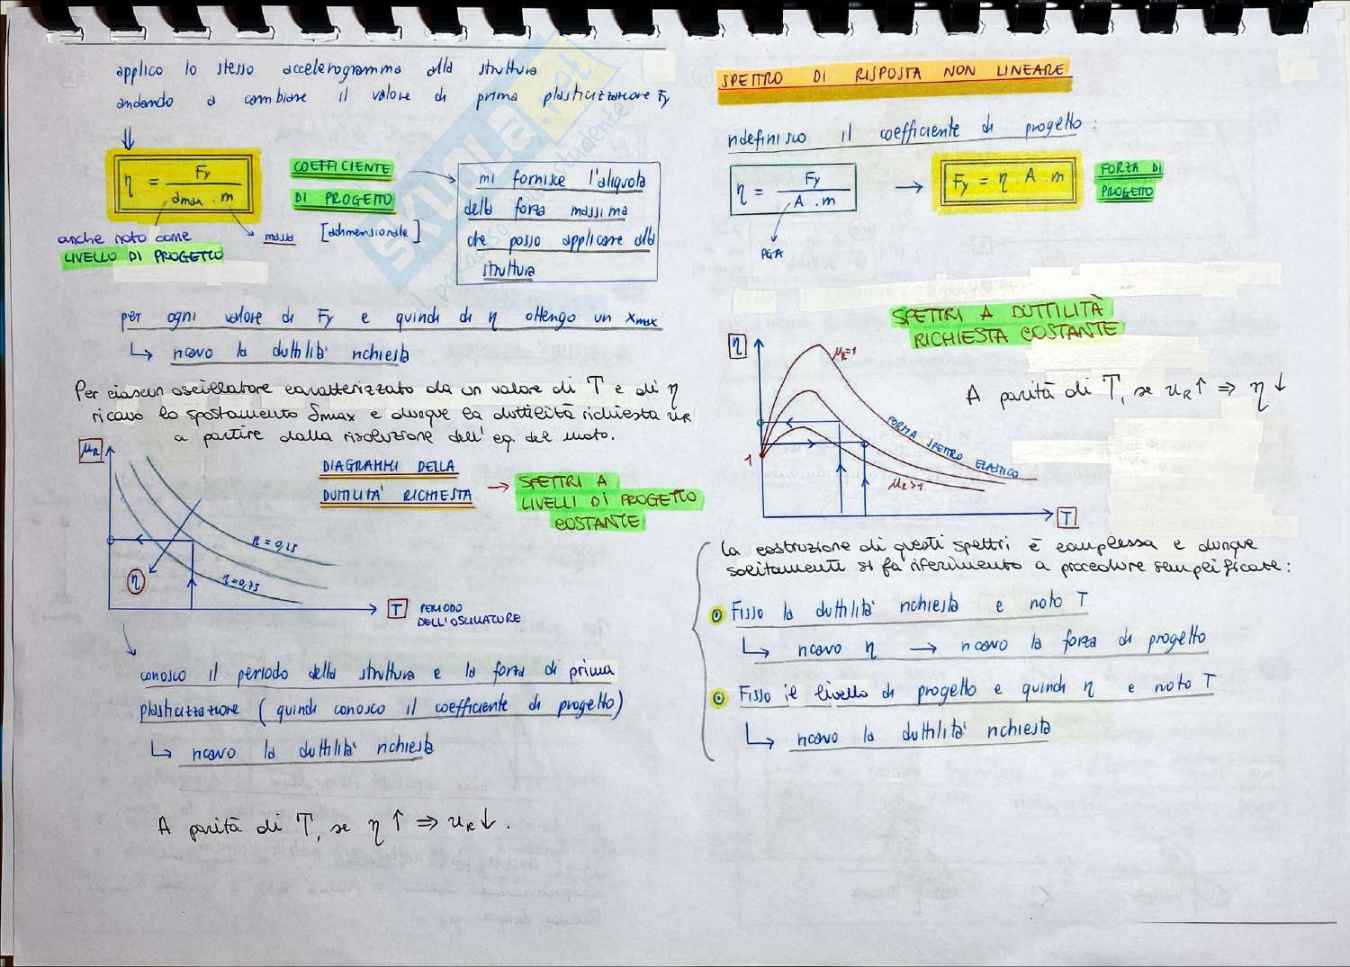 applico lo stesso accelerogramma alla struttura
andando a cambiare il valore di prima plasticizzazione Fy
η = Fy / amax . m
COEFFICIENTE
DI PROGETTO
[adimensionale]
massa
anche noto come
LIVELLO DI PROGETTO
mi fornisce l'aliquota
della forza massima
che posso applicare alla
struttura
per ogni valore di Fy e quindi di η ottengo un xmax
↳ ricavo la duttilità richiesta
Per ciascun oscillatore caratterizzato da un valore di T e di η
ricavo lo spostamento δmax e dunque la duttilità richiesta uR
a partire dalla risoluzione dell'eq. del moto.
μR
DIAGRAMMI DELLA
DUTTILITA' RICHIESTA
→ SPETTRI A
LIVELLI DI PROGETTO
COSTANTE
η = 0,25
η = 0,75
η
T PERIODO
DELL'OSCILLATORE
conosco il periodo della struttura e la forza di prima
plasticizzazione (quindi conosco il coefficiente di progetto)
↳ ricavo la duttilità richiesta
A parità di T, se η ↑ ⇒ uR ↓.
SPETTRO DI RISPOSTA NON LINEARE
ridefinisco il coefficiente di progetto:
η = Fy / A . m
→ Fy = η . A . m
FORZA DI
PROGETTO
PGA
SPETTRI A DUTTILITÀ
RICHIESTA COSTANTE
η
μR=1
A parità di T, se uR ↑ ⇒ η ↓
FORMA SPETTRO ELASTICO
1
μR>1
T
La costruzione di questi spettri è complessa e dunque
solitamente si fa riferimento a procedure semplificate:
Fisso la duttilità richiesta e noto T
↳ ricavo η → ricavo la forza di progetto
Fisso il livello di progetto e quindi η e noto T
↳ ricavo la duttilità richiesta